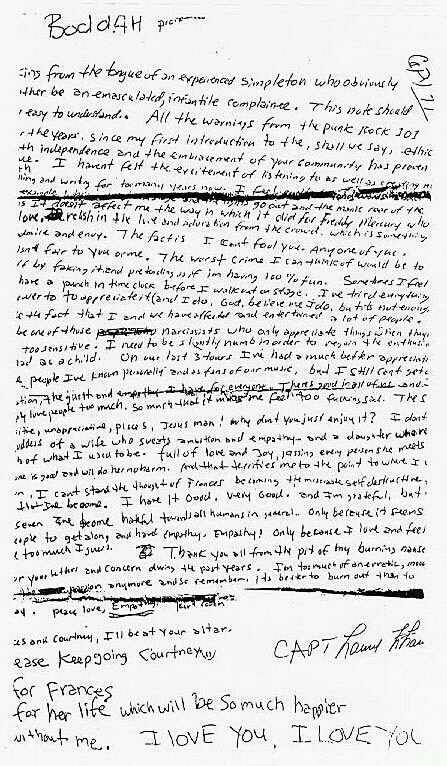 BoddAH
ing from the tongue of an experienced simpleton who obviously
ther be an emasculated, infantile complainee. This note should
easy to understand. All the warnings from the punk rock 101
the years. Since my first introduction to the, shall we say, ethic
th independence and the embracement of your community has proven
ue. I havent felt the excitement of listening to as well as creating
and writing for too many years now. I feel
go out and the manic roar of the
It doesnt affect me the way in which it did for Freddy Mercury who
love, relish in the love and adoration from the crowd. which is something
admire and envy. The fact is I cant fool you. Any one of you.
isnt fair to you or me. The worst crime I can think of would be to
by faking it and pretending as if im having 100% fun. Sometimes I feel
have a punch in time clock before I walk out on stage. I've tried everything
power to appreciate it (and I do, God, believe me I do, but its not enough
the fact that I and we have affected and entertained a lot of people.
be one of those narcissists who only appreciate things when they
too sensitive. I need to be slightly numb in order to regain the enthusia
as a child. On our last 3 tours I've had a much better appreciati
people I've known personally and as fans of our music, but I still cant get
the guilt and empathy I have for everyone. There's good in all of us and
ply love people too much. So much that it makes me feel too fucking sad. The
itive, unappreciative, pisces, Jesus man! why dont you just enjoy it? I dont
oddess of a wife who sweats ambition and empathy and a daughter who re
of what I used to be. full of love and Joy, kissing every person she meets
one is good and will do her no harm. And that terrifies me to the point to where I
I cant stand the thought of Frances becoming the miserable self destructive,
I've become. I have it Good. Very Good. and I'm grateful, but
seven I've become hateful towards all humans in general. Only because it seems
eople to get along and have empathy. Empathy! Only because I love and feel
too much I guess. Thank you all from the pit of my burning nause
your letters and concern during the past years. I'm too much of an erratic, moo
passion anymore and so remember, its better to burn out than to
peace love, Empathy. Kurt Cobain
es and Courtney, I'll be at your altar.
ease Keep going Courtney,
CAPT
for Frances
for her life which will be so much happier
without me. I LOVE YOU. I LOVE YOU